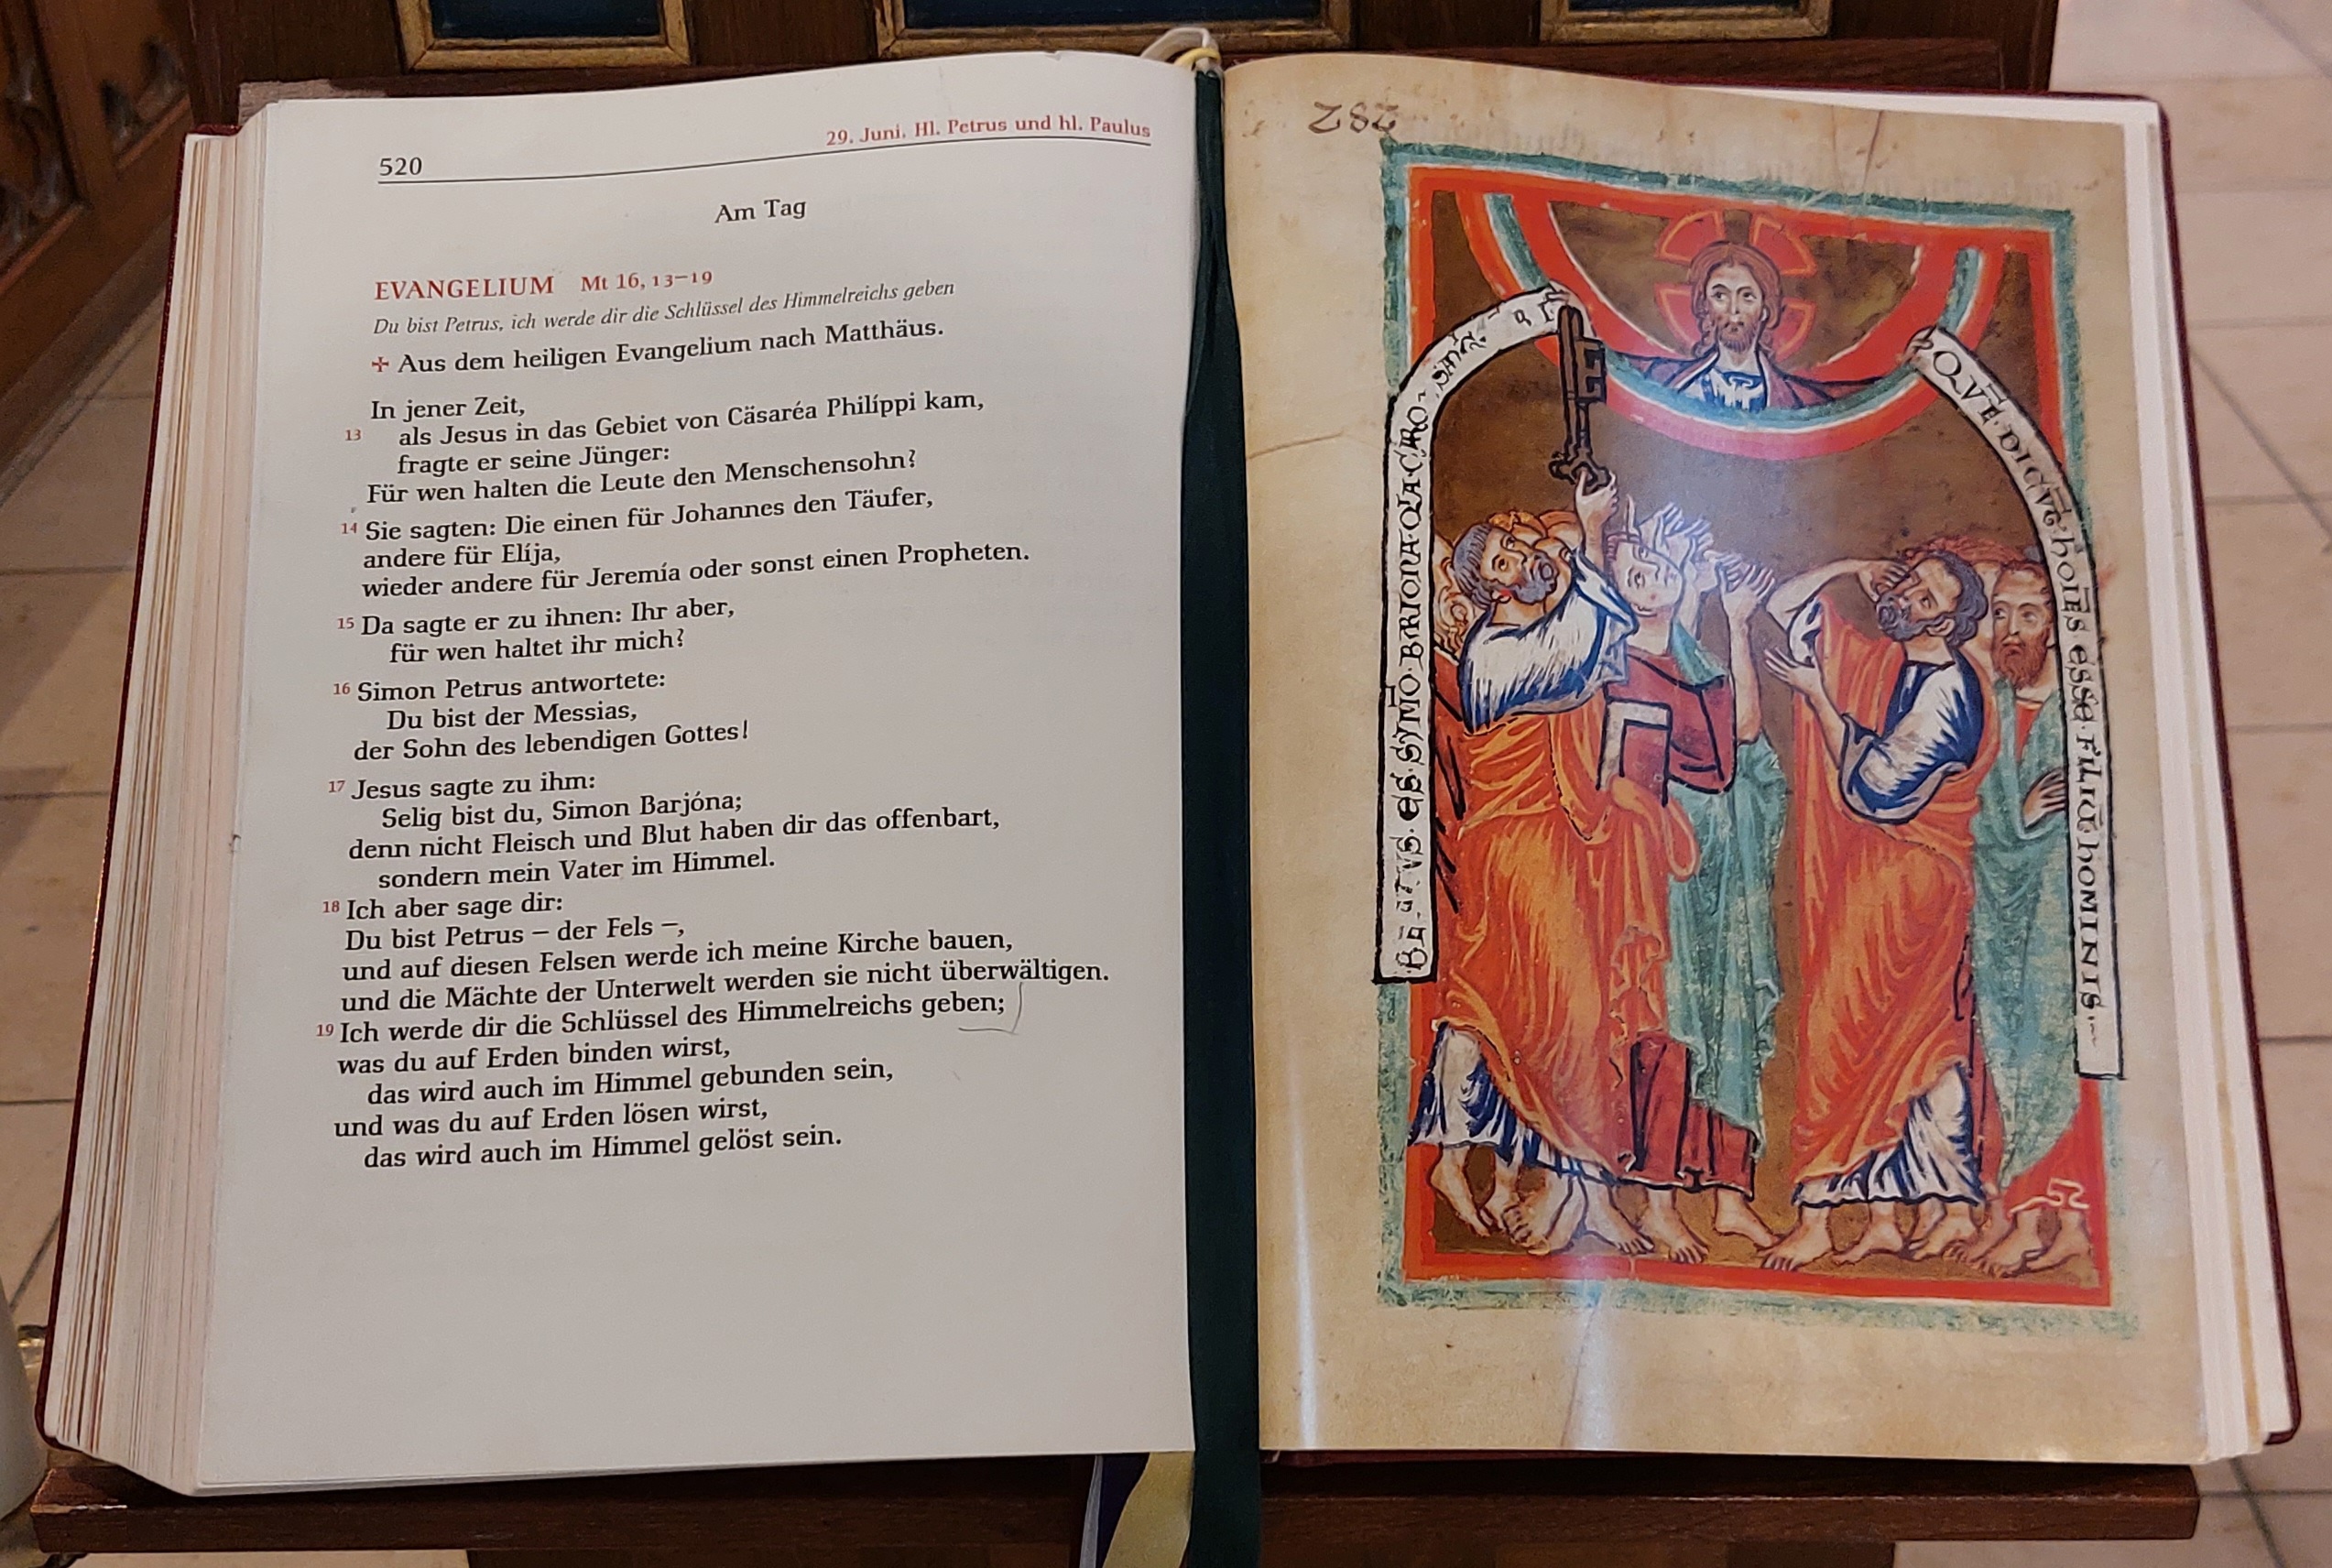 520
29. Juni. Hl. Petrus und hl. Paulus
Am Tag
EVANGELIUM Mt 16, 13–19
Du bist Petrus, ich werde dir die Schlüssel des Himmelreichs geben
✢ Aus dem heiligen Evangelium nach Matthäus.
In jener Zeit,
13 als Jesus in das Gebiet von Cäsaréa Philíppi kam,
fragte er seine Jünger:
Für wen halten die Leute den Menschensohn?
14 Sie sagten: Die einen für Johannes den Täufer,
andere für Elíja,
wieder andere für Jeremía oder sonst einen Propheten.
15 Da sagte er zu ihnen: Ihr aber,
für wen haltet ihr mich?
16 Simon Petrus antwortete:
Du bist der Messias,
der Sohn des lebendigen Gottes!
17 Jesus sagte zu ihm:
Selig bist du, Simon Barjóna;
denn nicht Fleisch und Blut haben dir das offenbart,
sondern mein Vater im Himmel.
18 Ich aber sage dir:
Du bist Petrus – der Fels –,
und auf diesen Felsen werde ich meine Kirche bauen,
und die Mächte der Unterwelt werden sie nicht überwältigen.
19 Ich werde dir die Schlüssel des Himmelreichs geben;
was du auf Erden binden wirst,
das wird auch im Himmel gebunden sein,
und was du auf Erden lösen wirst,
das wird auch im Himmel gelöst sein.
282
ES·SYMŌ·BARIONA·QIA·CARO
QVĒ·DICVT·hOIES ESSE·FILIŪ hOMINIS
52